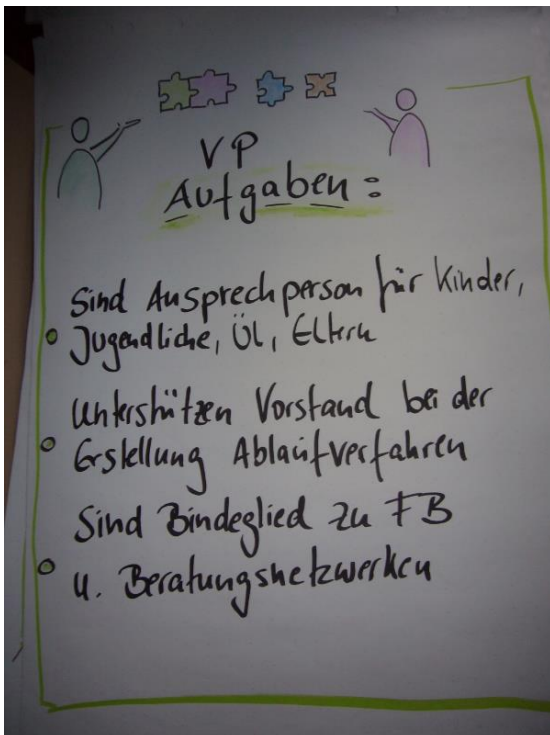 VP
Aufgaben:
Sind Ansprechperson für Kinder,
Jugendliche, ÜL, Eltern
Unterstützen Vorstand bei der
Erstellung Ablaufverfahren
Sind Bindeglied zu FB
u. Beratungsnetzwerken